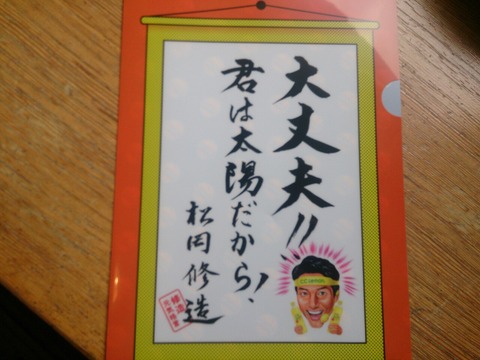 大丈夫!!
君は太陽だから!
松岡修造